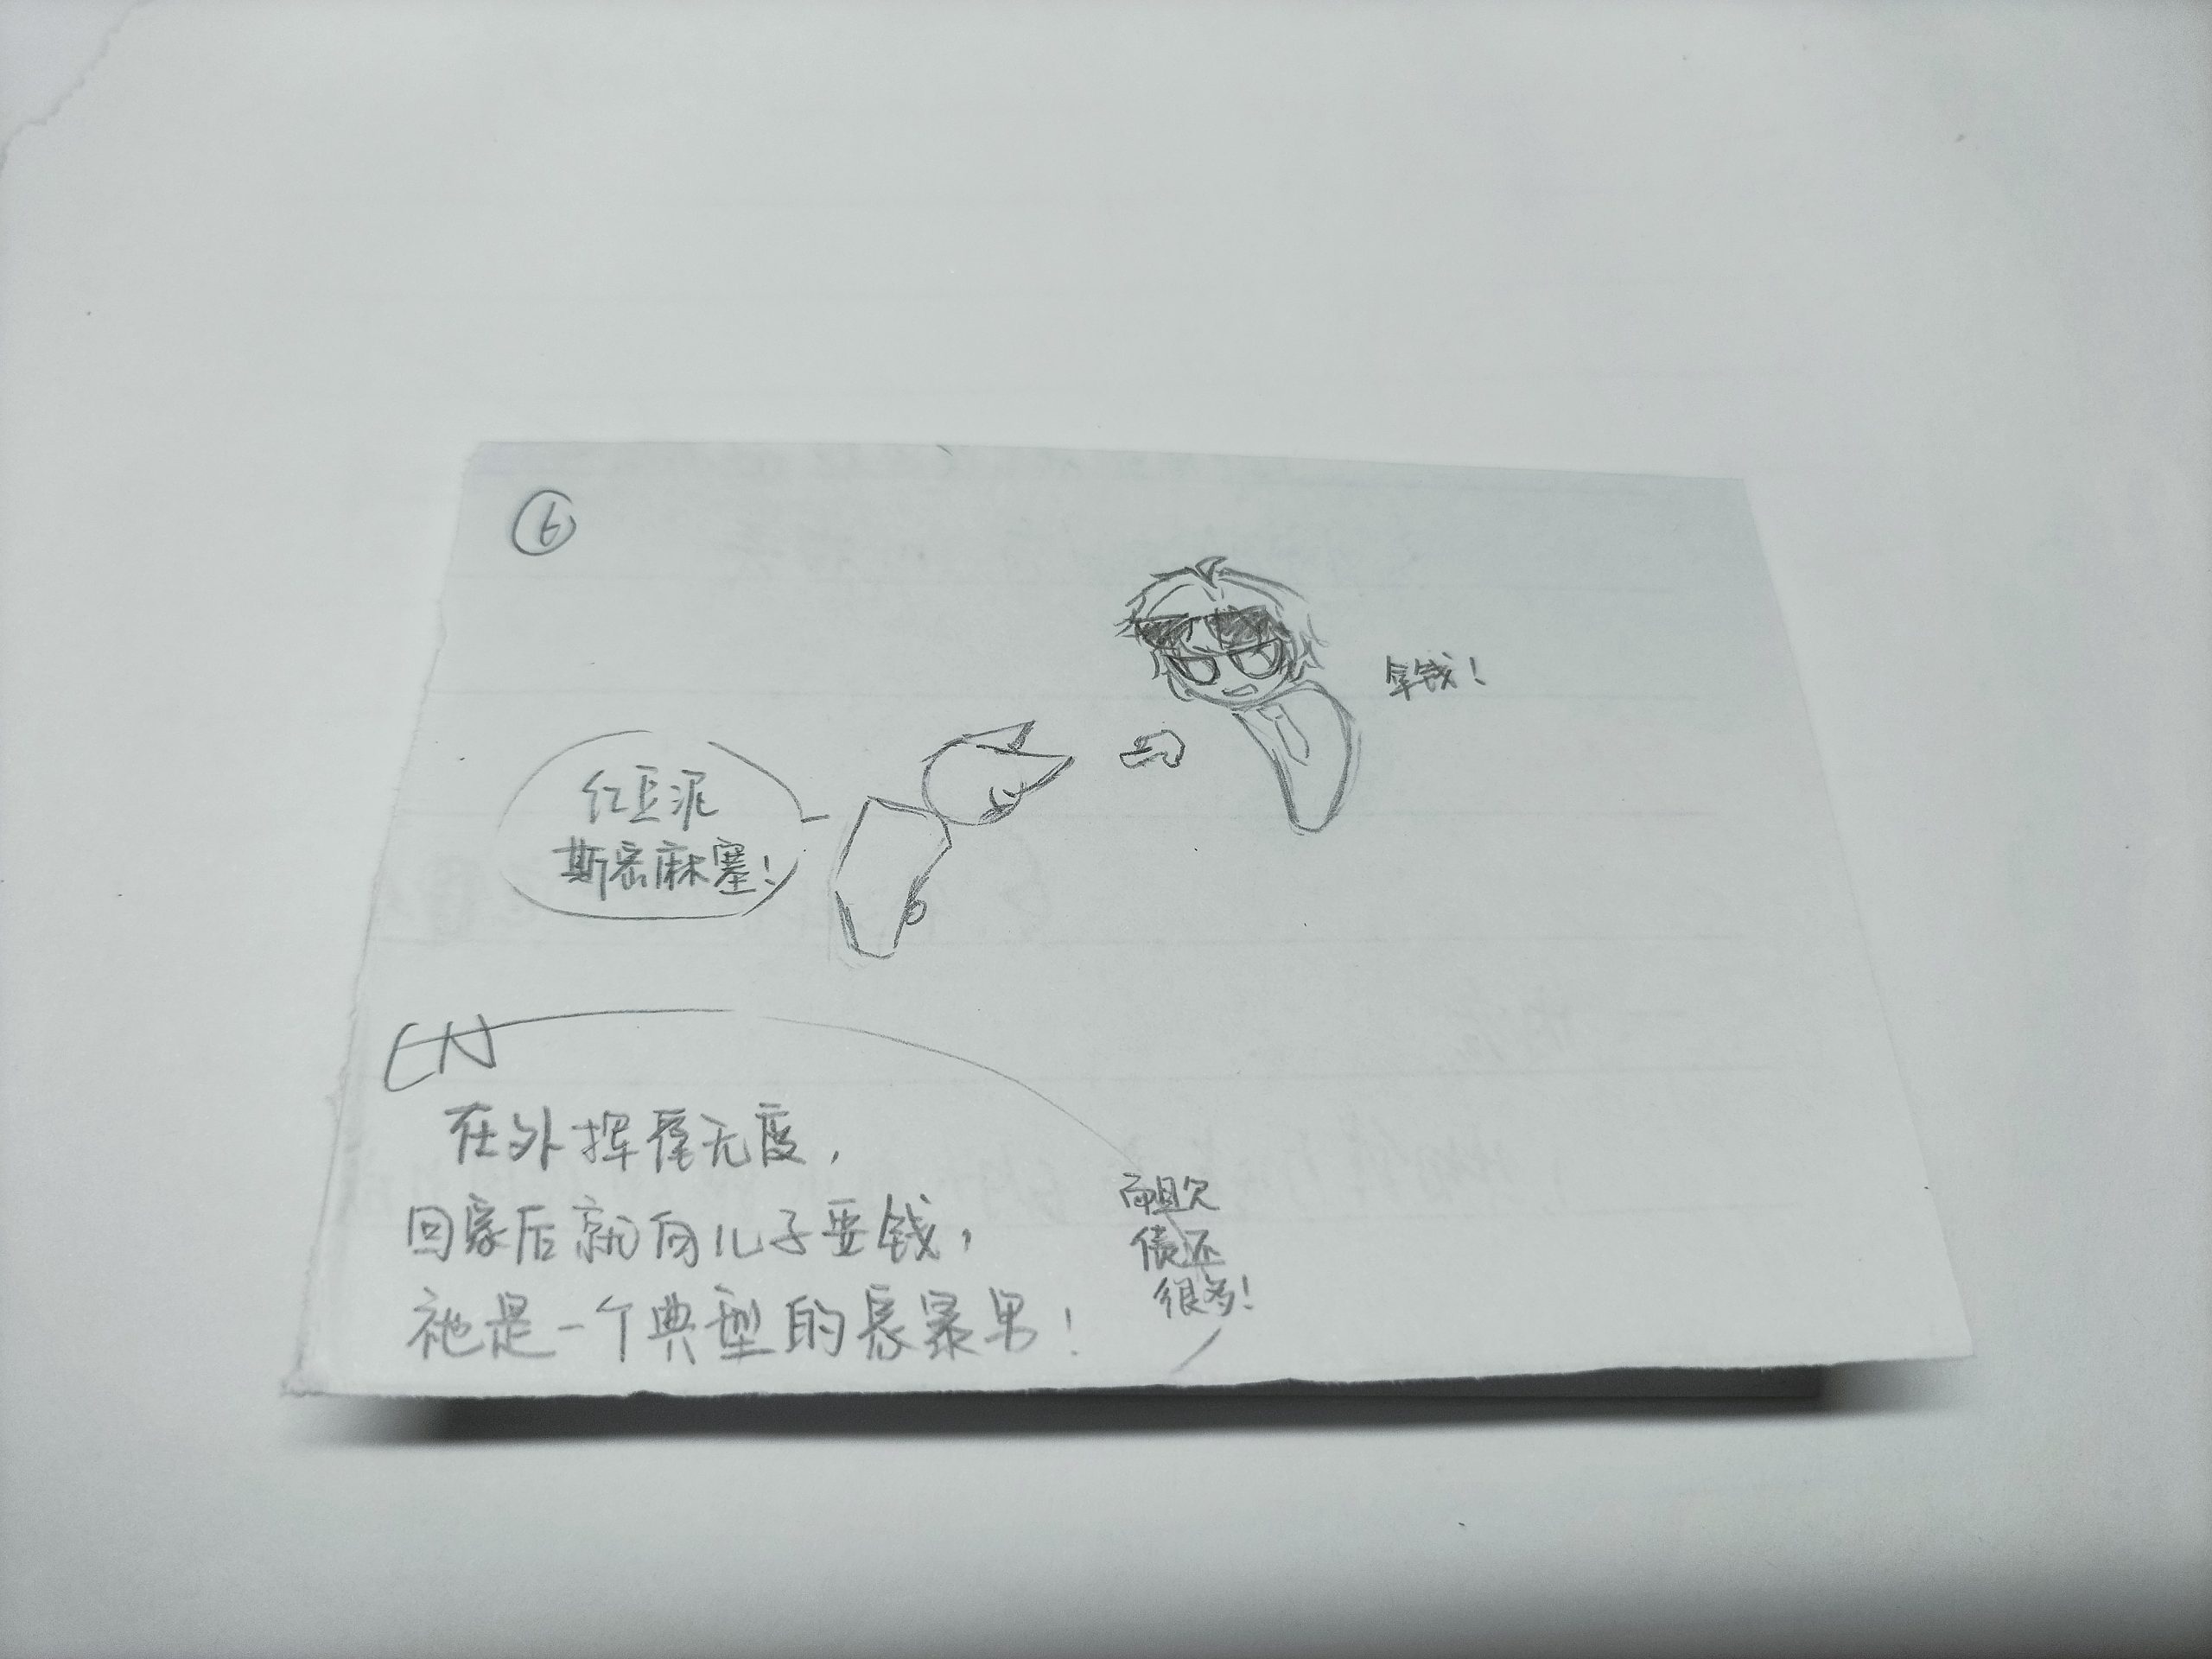 ⑥
拿钱!
红豆泥
斯密麻塞!
在外挥霍无度,
回家后就向儿子要钱,
祂是一个典型的家暴男!
而且欠
债还
很多!